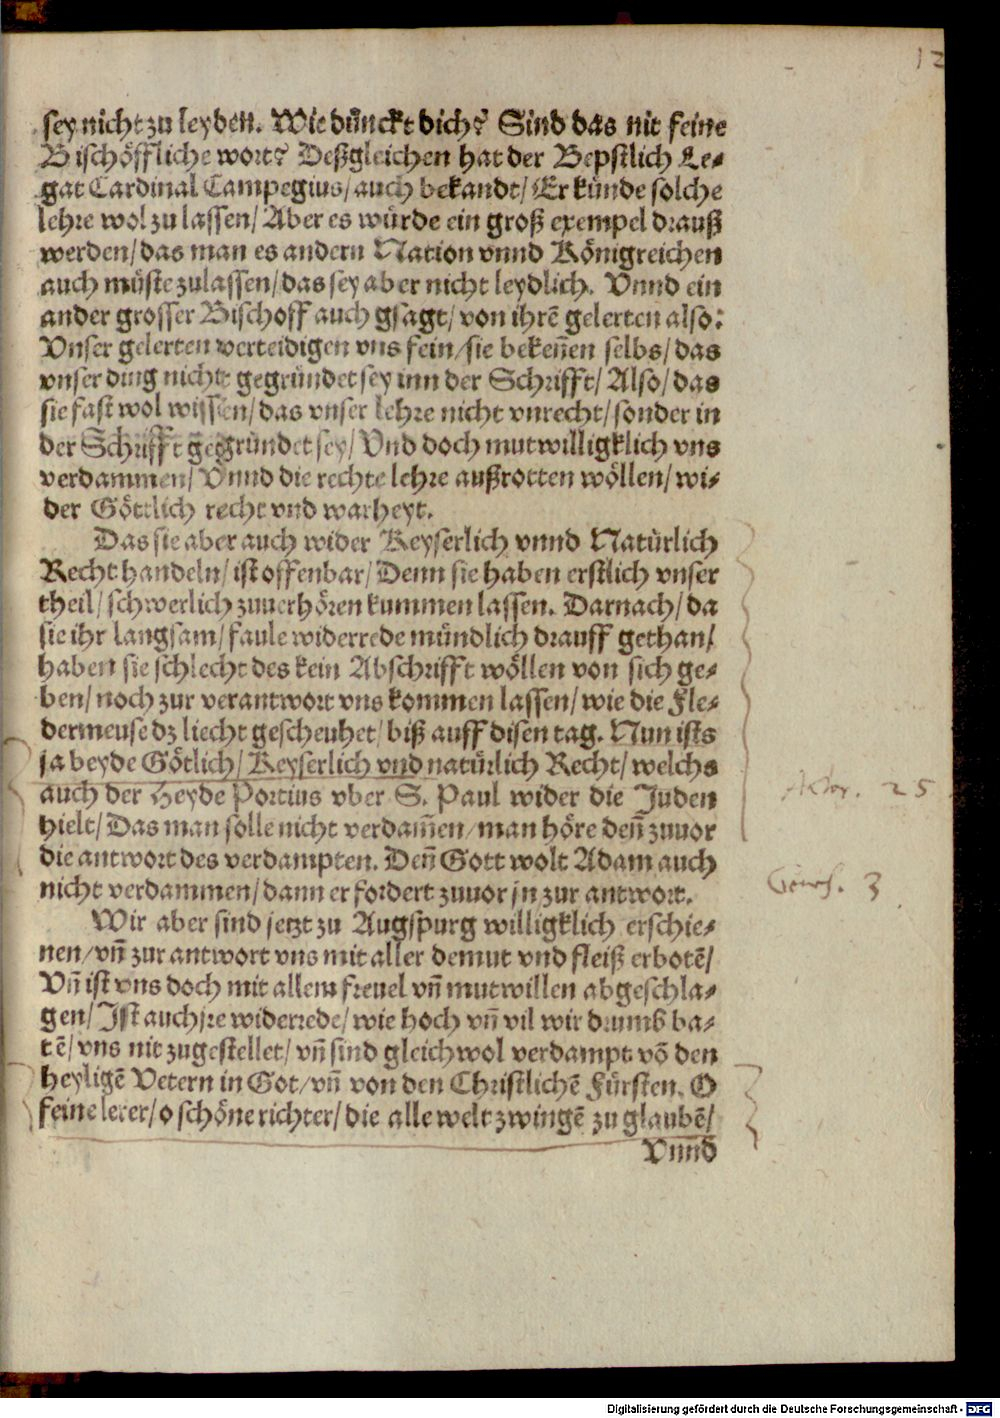 12
sey nicht zu leyden. Wie dünckt dich? Sind das nit feine
Bischöffliche wort? Deßgleichen hat der Bepstlich Le-
gat Cardinal Campegius/ auch bekandt/ Er künde solche
lehre wol zu lassen/ Aber es würde ein groß exempel drauß
werden/ das man es andern Nation vnnd Königreichen
auch müste zulassen/ das sey aber nicht leydlich. Vnnd ein
ander grosser Bischoff auch gsagt/ von ihrē gelerten also:
Vnser gelerten verteidigen vns fein/ sie bekeñen selbs/ das
vnser ding nicht gegründet sey inn der Schrifft/ Also/ das
sie fast wol wissen/ das vnser lehre nicht vnrecht/ sonder in
der Schrifft gegründet sey/ Vnd doch mutwilligklich vns
verdammen/ Vnnd die rechte lehre außrotten wöllen/ wi-
der Göttlich recht vnd warheyt.
Das sie aber auch wider Keyserlich vnnd Natürlich
Recht handeln/ ist offenbar/ Denn sie haben erstlich vnser
theil/ schwerlich zuuerhören kummen lassen. Darnach/ da
sie ihr langsam/ faule widerrede mündlich drauff gethan/
haben sie schlecht des kein Abschrifft wöllen von sich ge-
ben/ noch zur verantwort vns kommen lassen/ wie die Fle-
dermeuse dz liecht gescheuhet/ biß auff disen tag. Nun ists
ja beyde Götlich/ Keyserlich vnd natürlich Recht/ welchs
auch der Heyde Portius vber S. Paul wider die Juden
hielt/ Das man solle nicht verdam̃en/ man höre deñ zuuor
die antwort des verdampten. Deñ Gott wolt Adam auch
nicht verdammen/ dann er fordert zuuor jn zur antwort.
Actor. 25
Genes. 3
Wir aber sind jetzt zu Augspurg willigklich erschie-
nen/ vñ zur antwort vns mit aller demut vnd fleiß erbotē/
Vñ ist vns doch mit allem freuel vñ mutwillen abgeschla-
gen/ Ist auch jre widerrede/ wie hoch vñ vil wir drumb ba-
tē/ vns nit zugestellet/ vñ sind gleichwol verdampt vō den
heyligē Vetern in Got/ vñ von den Christlichē Fürsten. O
feine lerer/ o schöne richter/ die alle welt zwingē zu glaubē/
Vnnd
Digitalisierung gefördert durch die Deutsche Forschungsgemeinschaft - DFG